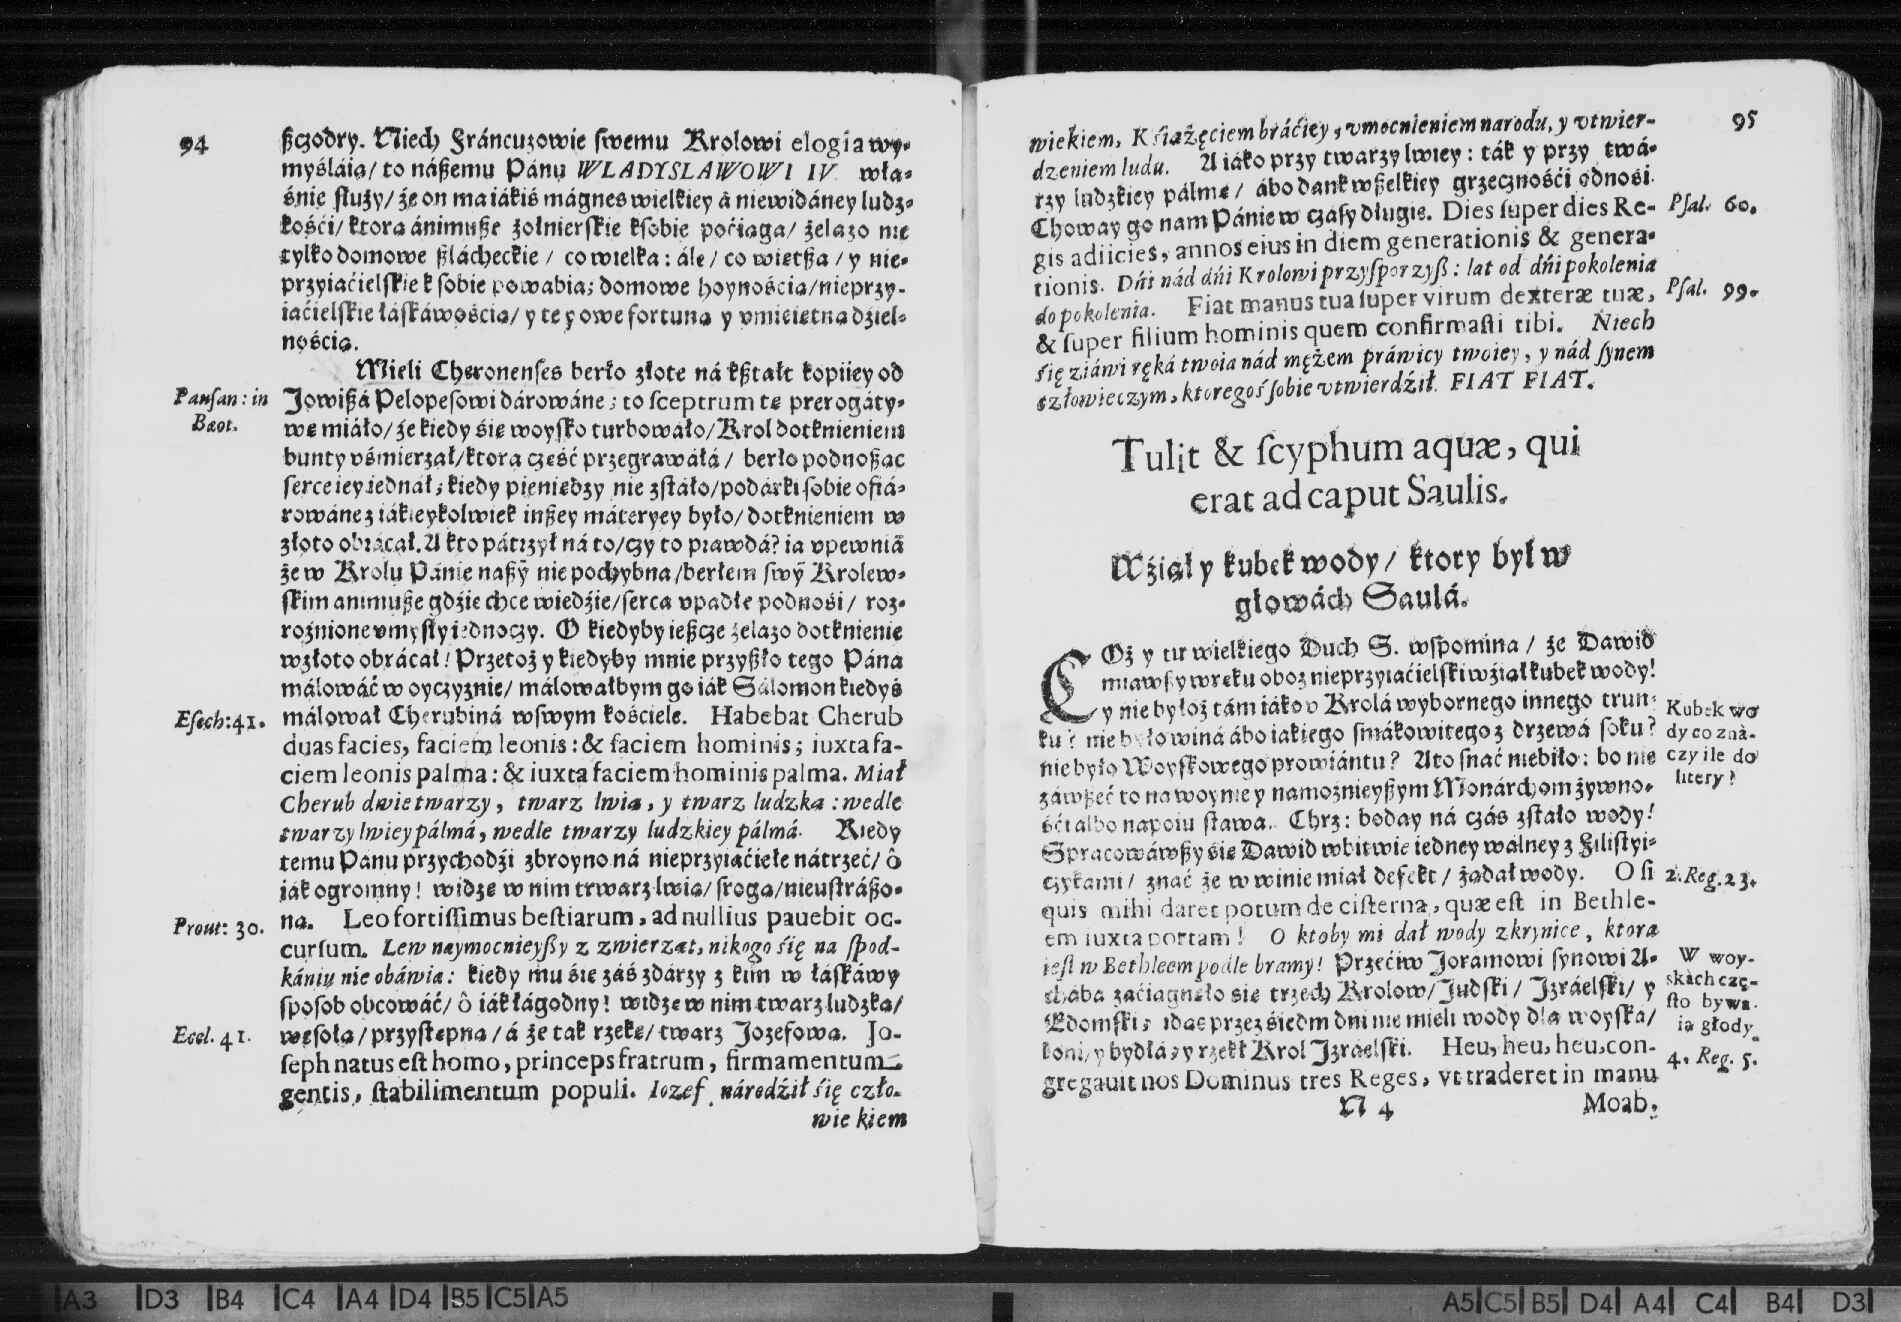 94
ßczodry. Niech Fráncuzowie swemu Krolowi elogia wy-
myśláią/ to nászemu Pánu WLADYSLAWOWI IV. wła-
śnie służy/ że on ma iákiś mágnes wielkiey á niewidáney ludz-
kośći/ ktora ánimusze żołnierskie ksobie poćiąga/ żelázo nie
tylko domowe szlácheckie/ co wielka: ále/ co więtsza/ y nie-
przyiaćielskie k sobie powabia; domowe hoynośćią/ nieprzy-
iaćielskie łáskáwośćią/ y te y owe fortuną y vmieiętną dźiel-
nośćią.
Mieli Cheronenses berło złote ná kształt kopiiey od
Pausan: in
Bæot.
Jowiszá Pelopesowi dárowáne; to sceptrum tę prerogáty-
wę miáło/ że kiedy się woysko turbowało/ Krol dotknieniem
bunty vśmierzał/ ktora część przegrawáłá/ berło podnosząc
serce iey iednał; kiedy pieniędzy nie zstáło/ podárki sobie ofiá-
rowáne z iákieykolwiek inszey máteryey było/ dotknieniem w
złoto obrácał. A kto pátrzył ná to/ czy to prawdá? ia vpewniã
że w Krolu Pánie naszỹ nie pochybna/ berłem swỹ Krolew-
skim animusze gdźie chce wiedźie/ serca vpadłe podnośi/ roz-
rożnione vmysły iednoczy. O kiedyby ieszcze żelázo dotknienie
wzłoto obrácał! Przetoż y kiedyby mnie przyszło tego Pána
málowáć w oyczyznie/ málowałbym go iák Sálomon kiedyś
Esech: 41.
málował Cherubiná wswym kośćiele. Habebat Cherub
duas facies, faciem leonis: & faciem hominis; iuxta fa-
ciem leonis palma: & iuxta faciem hominis palma. Miał
Cherub dwie twarzy, twarz lwia, y twarz ludzka: wedle
twarzy lwiey pálmá, wedle twarzy ludzkiey pálmá. Kiedy
temu Pánu przychodźi zbroyno ná nieprzyiaćiele nátrzeć/ ô
iák ogromny! widzę w nim twarz lwią/ srogą/ nieustrászo-
Prout: 30.
ną. Leo fortissimus bestiarum, ad nullius pauebit oc-
cursum. Lew naymocnieyszy z zwierzat, nikogo się na spod-
kániu nie obáwia: kiedy mu się záś zdárzy z kim w łáskáwy
sposob obcowáć/ ô iák łágodny! widzę w nim twarz ludzką/
Eccl. 41.
wesołą/ przystępną/ á że tak rzekę/ twarz Jozefową. Jo-
seph natus est homo, princeps fratrum, firmamentum
gentis, stabilimentum populi. Iozef národźił się czło-
wie kiem
95
wiekiem, Kśiążęciem bráćiey, vmocnieniem narodu, y vtwier-
dzeniem ludu. A iáko przy twarzy lwiey: ták y przy twá-
rzy ludzkiey pálmę/ ábo dank wszelkiey grzecznośći odnośi.
Choway go nam Pánie w czásy długie. Dies super dies Re-
Psal. 60.
gis adiicies, annos eius in diem generationis & genera-
tionis. Dńi nád dńi Krolowi przysporzysz: lat od dńi pokolenia
do pokolenia. Fiat manus tua super virum dexteræ tuæ,
Psal. 99.
& super filium hominis quem confirmasti tibi. Niech
się ziáwi ręká twoia nád mężem práwicy twoiey, y nád synem
człowieczym, ktoregoś sobie vtwierdźił. FIAT FIAT.
Tulit & scyphum aquæ, qui
erat ad caput Saulis.
Wźiął y kubek wody/ ktory był w
głowách Saulá.
COż y tu wielkiego Duch S. wspomina/ że Dawid
miawszy wręku oboz nieprzyiaćielski wźiął kubek wody!
y nie byłoż tám iáko v Krolá wybornego innego trun-
Kubek wo
ku? nie było winá ábo iakiego smákowitego z drzewá soku?
dy co zná-
nie było Woyskowego prowiántu? A to snać niebiło: bo nie
czy ile do
litery?
záwszeć to na woynie y namożnieyszym Monárchom żywno-
śći albo napoiu stawa. Chrz: boday ná czás zstało wody!
Spracowáwszy się Dawid wbitwie iedney wálney z Filistyi-
czykami/ znać że w winie miał defekt/ żądał wody. O si
2. Reg. 23.
quis mihi daret potum de cisterna, quæ est in Bethle-
em iuxta portam! O ktoby mi dał wody z krynice, ktora
iest w Bethleem podle bramy! Przećiw Joramowi synowi A-
W woy-
skách czę-
sto bywa-
ią głody.
chábá zaćiągnęło się trzech Krolow/ Judski/ Jzráelski/ y
Edomski; idąc przez siedm dni nie mieli wody dla woyska/
koni/ y bydłá; y rzekł Krol Jzráelski. Heu, heu, heu, con-
4. Reg. 5.
gregauit nos Dominus tres Reges, vt traderet in manu
N 4
Moab.
A3 D3 B4 C4 A4 D4 B5 C5 A5
A5 C5 B5 D4 A4 C4 B4 D3